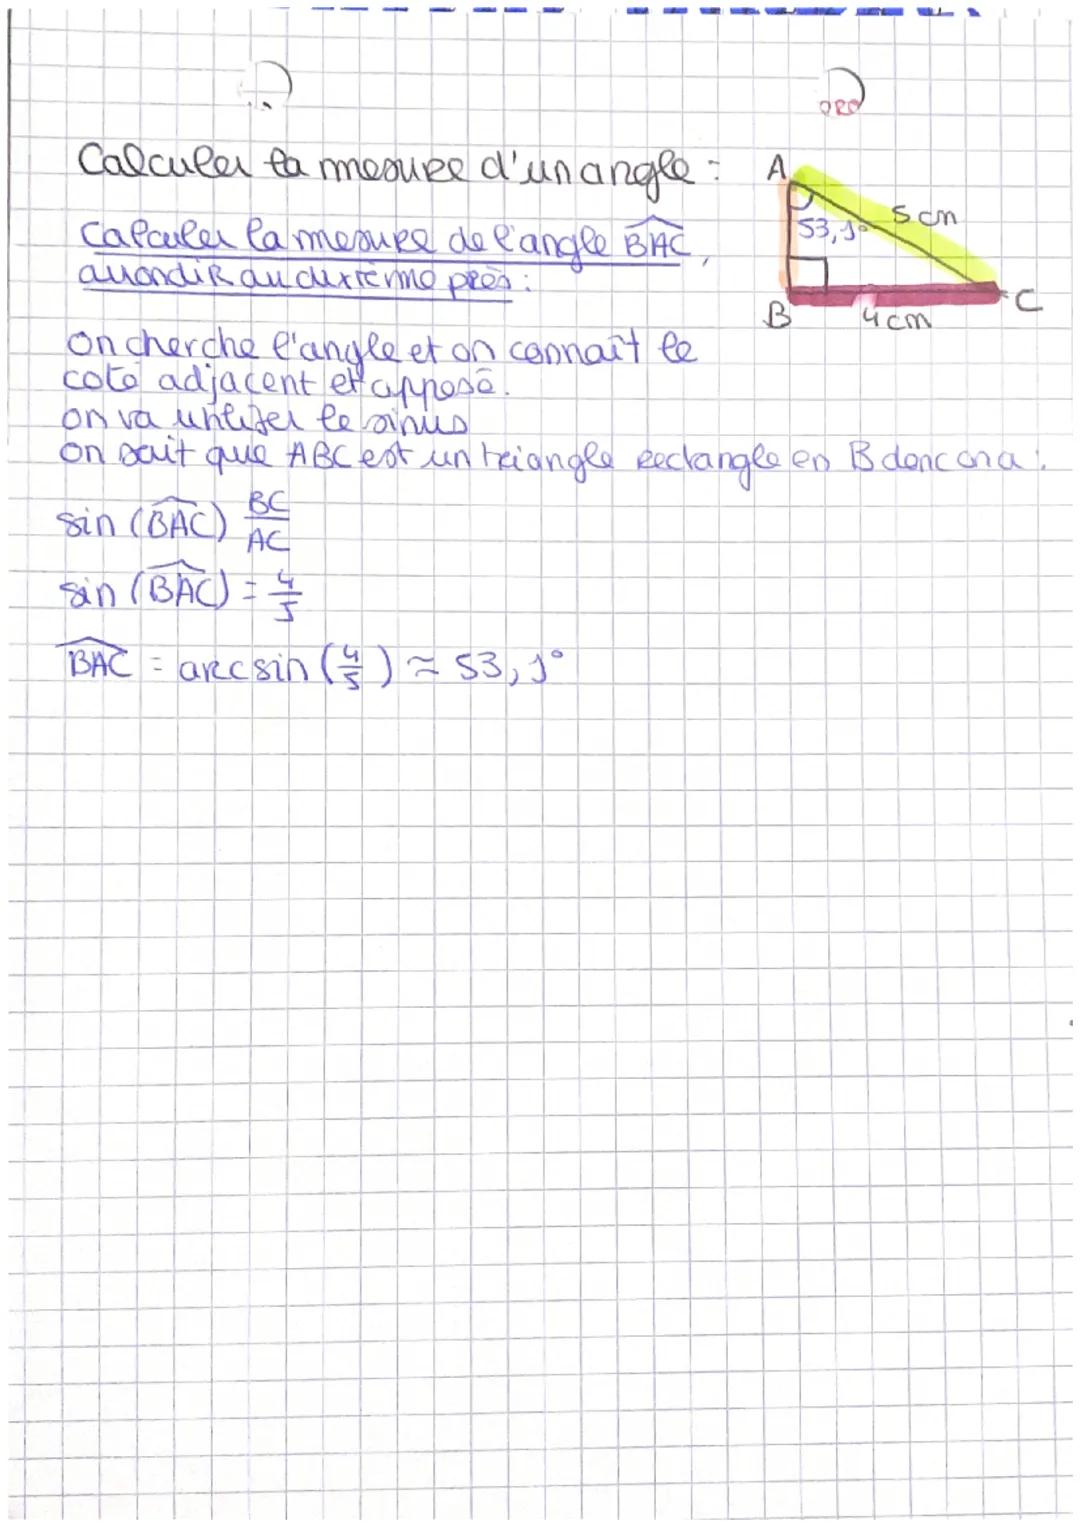 Calculer la mesure d'un angle :
Calculer la mesure de l'angle BAC,
arrondir au dixième près :
A
5 cm
53,1°
B
4 cm
C
on cherche l'angle et on connaît le
coté adjacent et opposé.
on va utiliser le sinus
on sait que ABC est un triangle rectangle en B donc on a :
sin (BAC) BC/AC
sin (BAC) = 4/5
BAC = arcsin (4/5) ≈ 53,1°